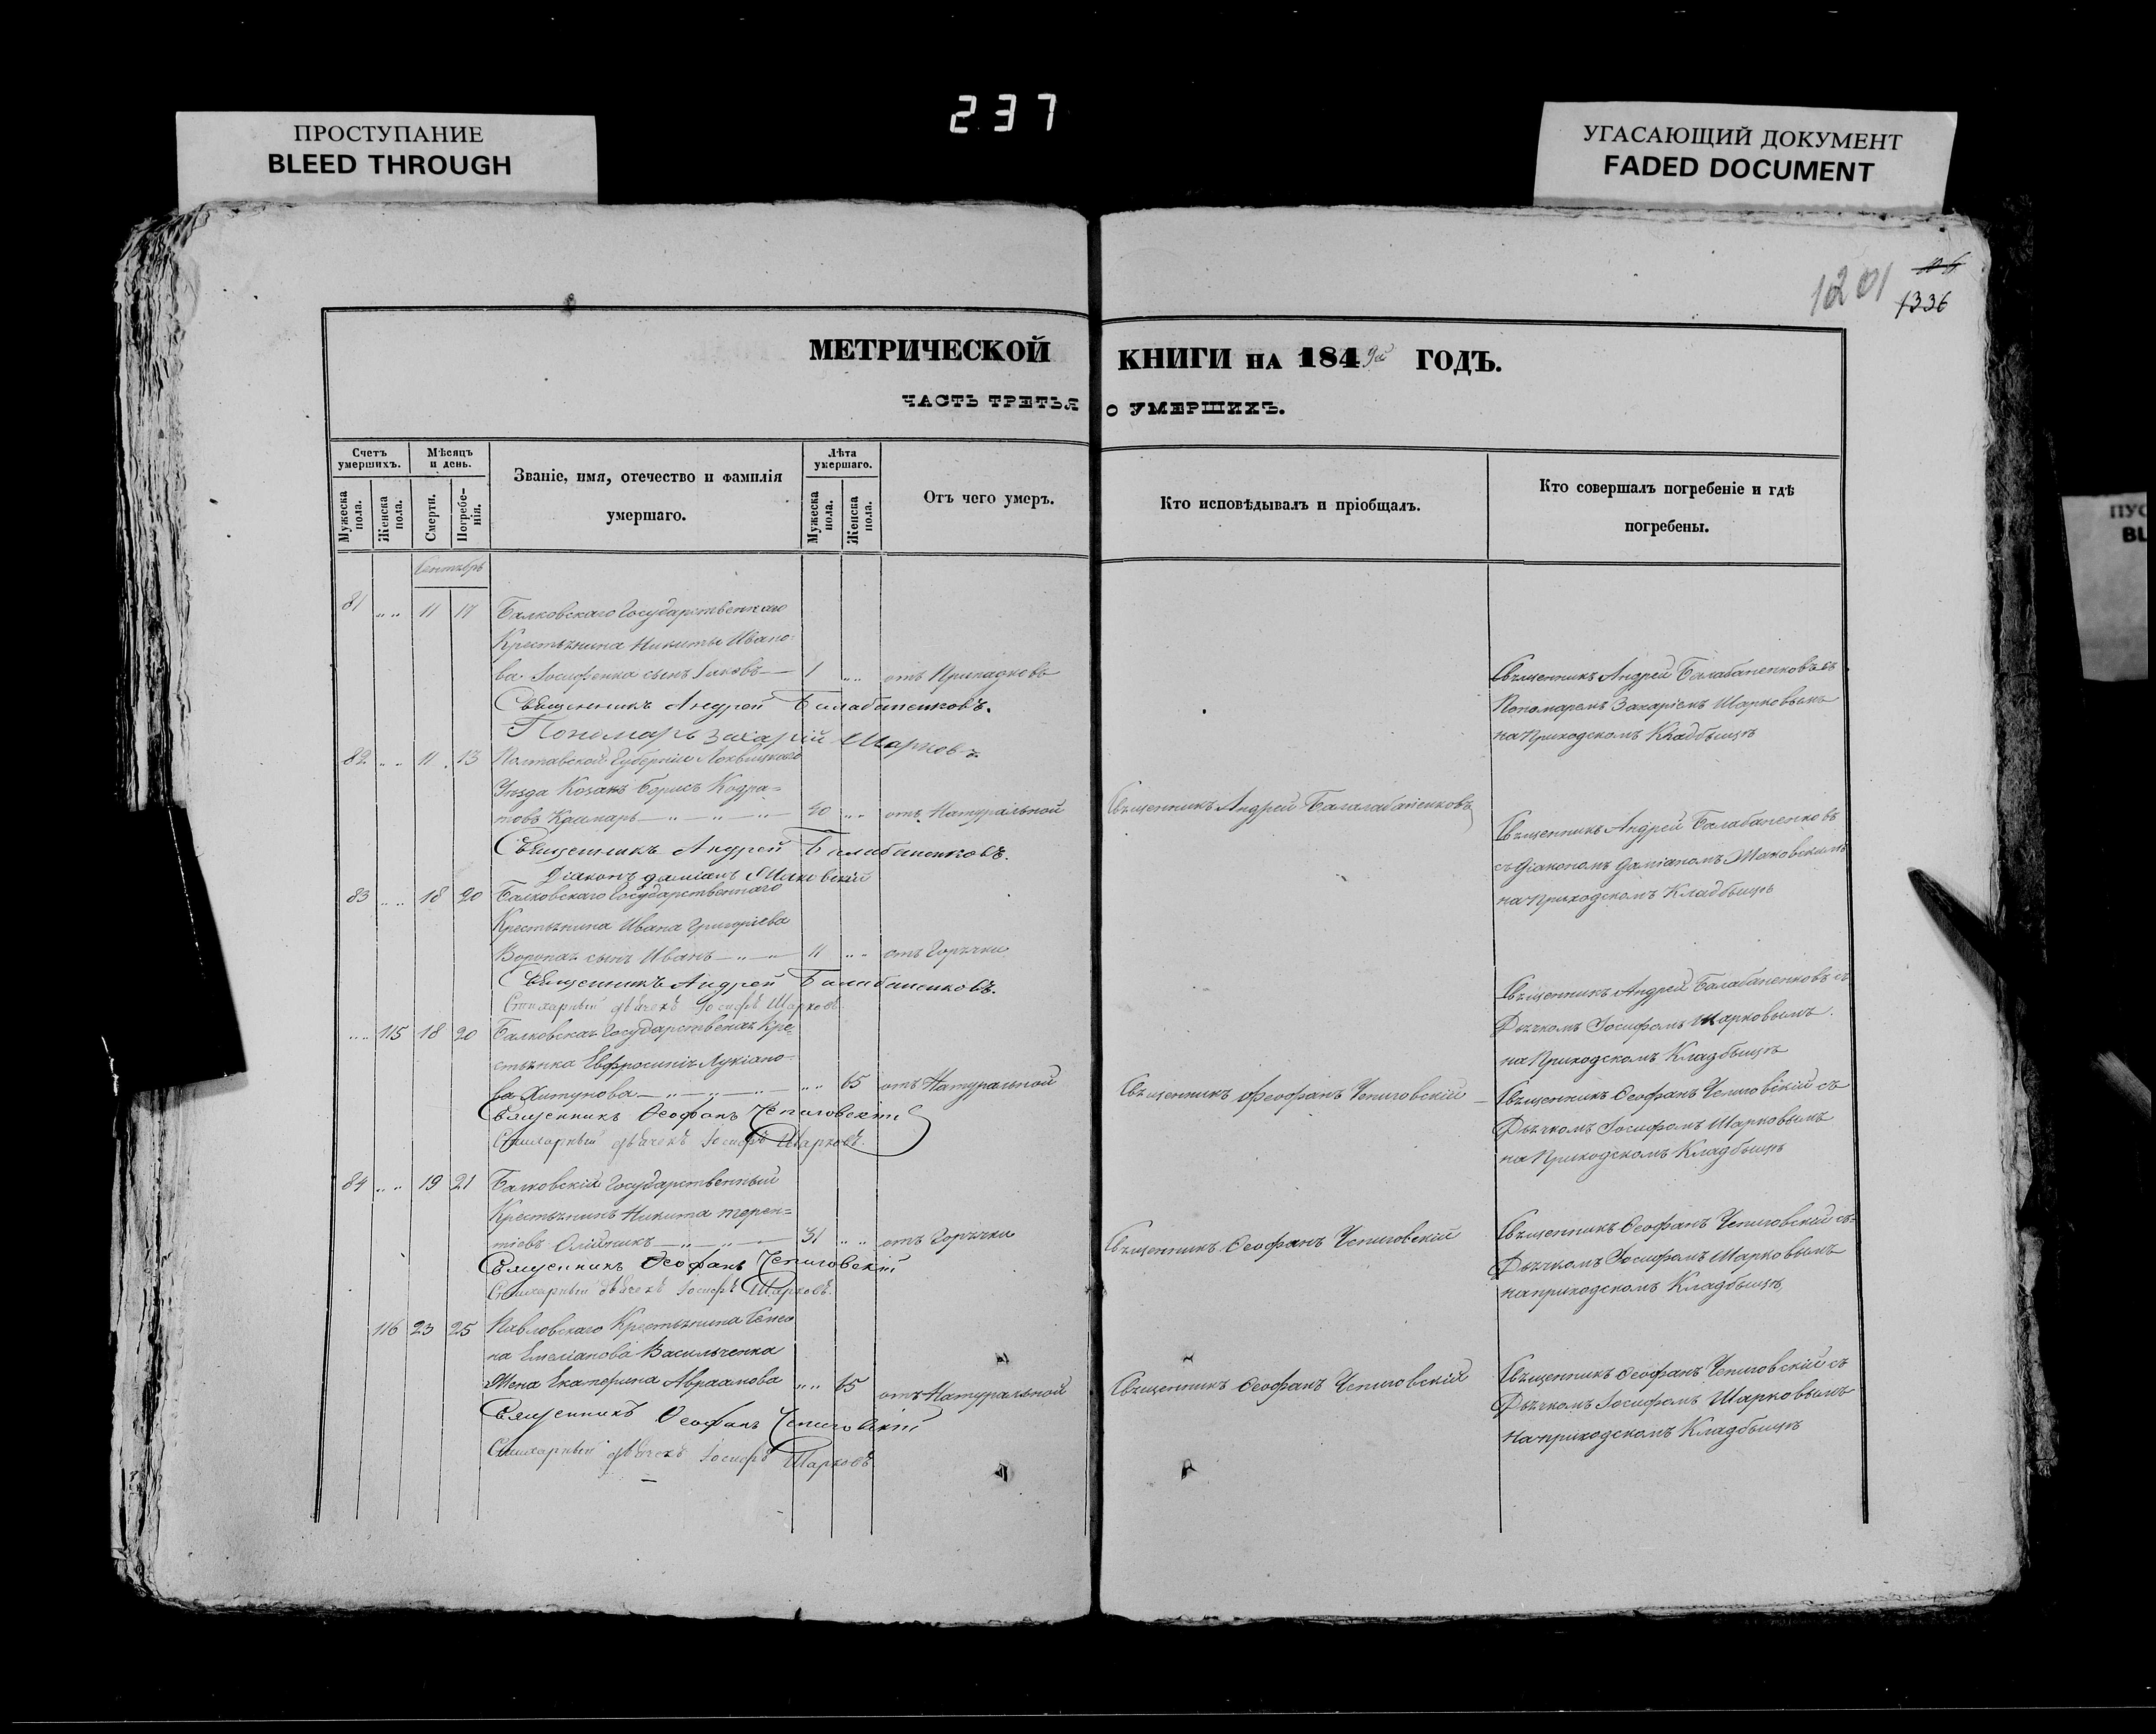 237
ПРОСТУПАНИЕ
BLEED THROUGH
УГАСАЮЩИЙ ДОКУМЕНТ
FADED DOCUMENT
1201
1336
МЕТРИЧЕСКОЙ КНИГИ НА 1849й ГОДЪ.
ЧАСТЬ ТРЕТЬЯ О УМЕРШИХЪ.
Счетъ умершихъ.
Мужеска пола.
Женска пола.
Мѣсяцъ и день.
Смерти.
Погребенія.
Званіе, имя, отечество и фамилія
умершаго.
Лѣта умершаго.
Мужеска пола.
Женска пола.
Отъ чего умеръ.
Кто исповѣдывалъ и пріобщалъ.
Кто совершалъ погребеніе и гдѣ
погребены.
Сентябрь
81 „ „ 11 17 Балковскаго Государственнаго
Крестьянина Никиты Ивано=
ва Іосифенка сынъ Іаковъ — 1 „ „ отъ Припадковъ
Священникъ Андрей Балабаненковъ съ
Пономаремъ Захаріемъ Шарковымъ
на Приходскомъ Кладбыщѣ
Священникъ Андрей Балабаненковъ.
Пономарь Захарій Шарковъ
82 „ „ 11 13 Полтавской Губерніи Лохвицкаго
Уѣзда Козакъ Борисъ Кодра=
товъ — „ — „ — „ — 40 „ „ отъ Натуральной
Священникъ Андрей Балалабаненковъ
Священникъ Андрей Балабаненковъ
съ Діакономъ Даміаномъ Маковскимъ
на Приходскомъ Кладбыщѣ
Священникъ Андрей Балабаненковъ.
Діаконъ Даміанъ Маковскій
83 „ „ 18 20 Балковскаго Государственнаго
Крестьянина Ивана Григоріева
сынъ Иванъ — „ — „ 11 „ „ отъ Горячки
Священникъ Андрей Балабаненковъ съ
Дьячкомъ Іосифомъ Шарковымъ.
на Приходскомъ Кладбыщѣ
Священникъ Андрей Балабаненковъ.
Стихарный дьячекъ Іосифъ Шарковъ.
„ „ 115 18 20 Балковская Государственая Кре=
стьянка Евфросинія Лукіано=
ва — „ — „ — „ — „ „ 65 отъ Натуральной
Священникъ Феофанъ Чепиговскій —
Священникъ Ѳеофанъ Чепиговскій съ
Дьячкомъ Іосифомъ Шарковымъ
на Приходскомъ Кладбыщѣ
Священникъ Ѳеофанъ Чепиговскій
Стихарный дьячекъ Іосифъ Шарковъ.
84 „ „ 19 21 Балковскій Государственный
Крестьянинъ Никита Терен=
тіевъ Олійникъ — „ — „ — 31 „ „ отъ Горячки
Священникъ Ѳеофанъ Чепиговскій
Священникъ Ѳеофанъ Чепиговскій съ=
Дьячкомъ Іосифомъ Шарковымъ
на приходскомъ Кладбыщѣ,
Священникъ Ѳеофанъ Чепиговскій
Стихарный дьячекъ Іосифъ Шарковъ.
116 23 25 Павловскаго Крестьянина Семео
на Емеліанова Васильченка
Жена Екатерина Авраамова „ „ 65 отъ Натуральной
Священникъ Ѳеофанъ Чепиговскій
Священникъ Ѳеофанъ Чепиговскій съ
Дьячкомъ Іосифомъ Шарковымъ
на приходскомъ Кладбыщѣ
Священникъ Ѳеофанъ Чепиговскій
Стихарный дьячекъ Іосифъ Шарковъ.